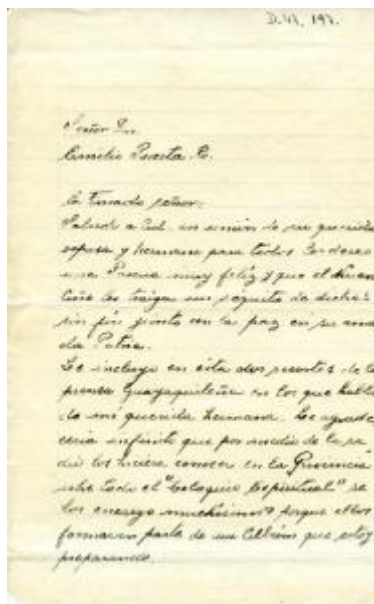 D.VI, 197.
Señor Dn.
Emilio
Estimado señor:
Saludo a Ud. en unión de su querida
esposa y hermana para todos les deseo
una Pascua muy feliz y que el
Niño les traiga un de dichas
sin fin junto con la paz en su ama
da Patria.
Le incluyo en ésta dos recortes de la
prensa Guayaquileña en los que habla
de mi querida hermana. Le agrade
cería infinito que por medio de la ra
dio los hiciera conocer en la Provincia
sobre todo el "Coloquio Espiritual" se
los encargo muchísimo porque ellos
formaran parte de un que estoy
preparando.